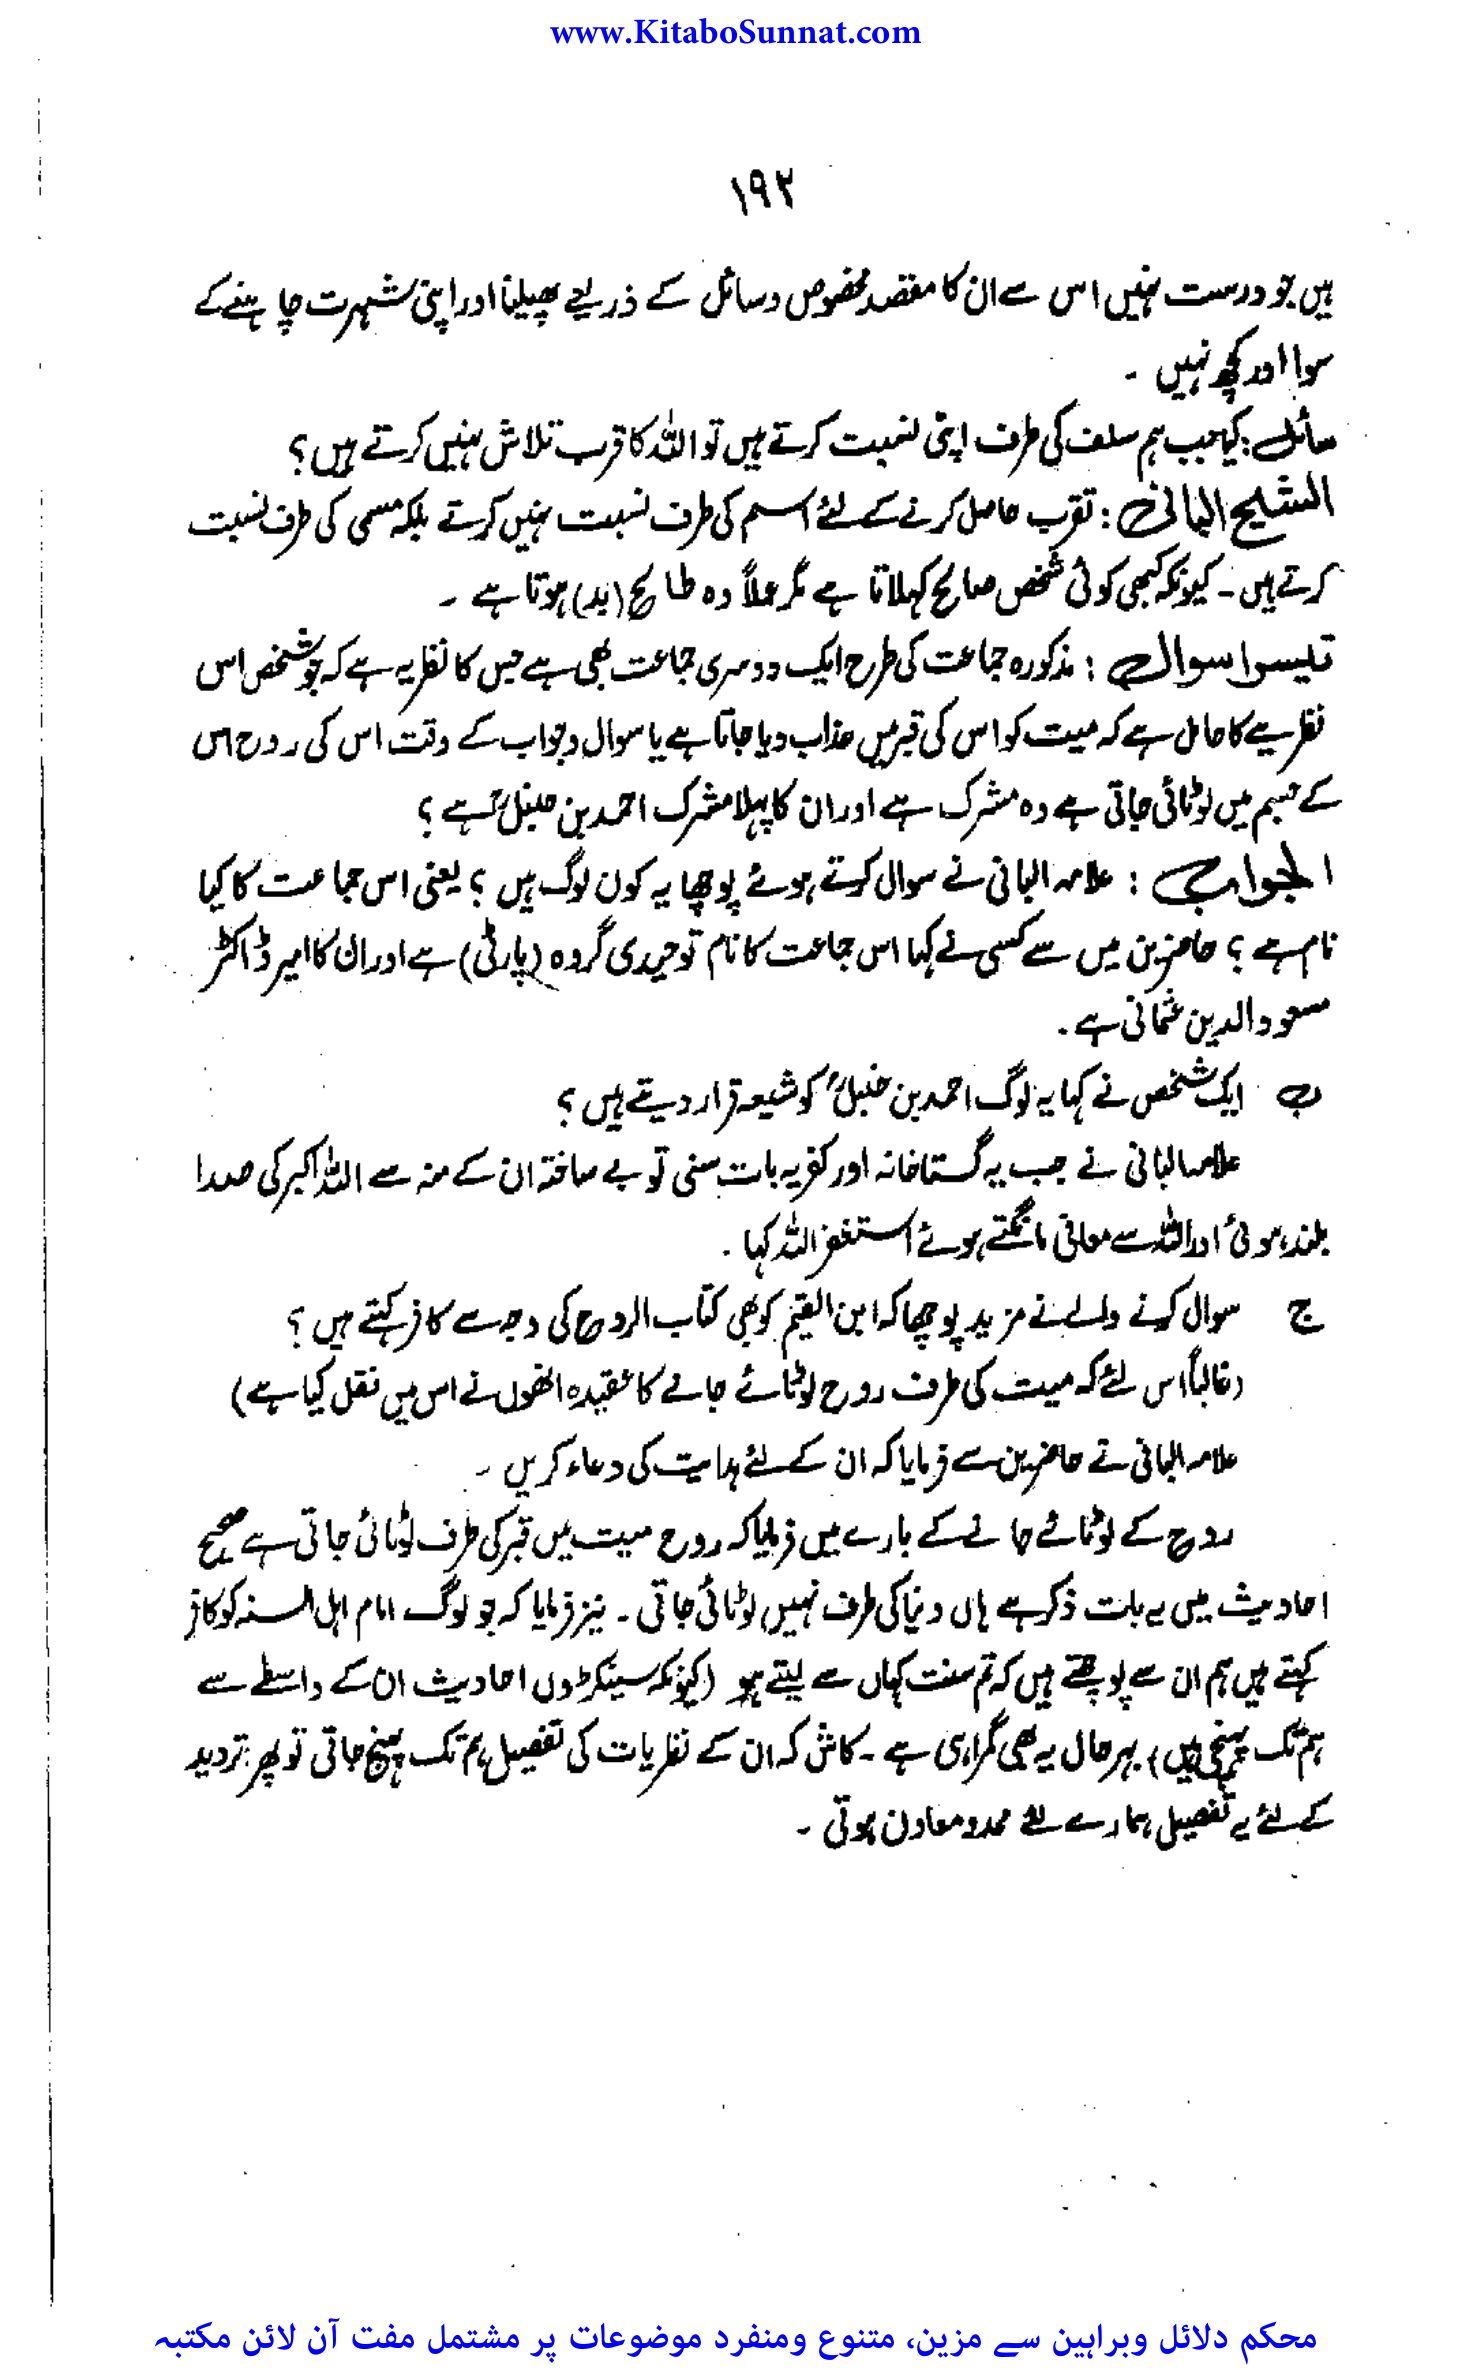 www.KitaboSunnat.com
۱۹۲
ہیں جو درست نہیں اس سے ان کا مقصد مخصوص وسائل کے ذریعے پھیلنا اور اپنی شہرت چاہنے کے
سوا اور کچھ نہیں ۔
سائل : کیا جب ہم سلف کی طرف اپنی نسبت کرتے ہیں تو اللہ کا قرب تلاش نہیں کرتے ہیں ؟
الشیخ البانی : تقرب حاصل کرنے کے لئے اسم کی طرف نسبت نہیں کرتے بلکہ مسمی کی طرف نسبت
کرتے ہیں ۔ کیونکہ کبھی کوئی شخص صالح کہلاتا ہے مگر عملاً وہ طالح (بد) ہوتا ہے ۔
تیسرا سوال : مذکورہ جماعت کی طرح ایک دوسری جماعت بھی ہے جس کا نظریہ ہے کہ جو شخص اس
نظریے کا حامل ہے کہ میت کو اس کی قبر میں عذاب دیا جاتا ہے یا سوال وجواب کے وقت اس کی روح اس
کے جسم میں لوٹائی جاتی ہے وہ مشرک ہے اور ان کا پہلا مشرک احمد بن حنبلؒ ہے ؟
الجواب : علامہ البانی نے سوال کرتے ہوئے پوچھا یہ کون لوگ ہیں ؟ یعنی اس جماعت کا کیا
نام ہے ؟ حاضرین میں سے کسی نے کہا اس جماعت کا نام توحیدی گروہ (پارٹی) ہے اور ان کا امیر ڈاکٹر
مسعود الدین عثمانی ہے ۔
ب ایک شخص نے کہا یہ لوگ احمد بن حنبلؒ کو شیعہ قرار دیتے ہیں ؟
علامہ البانی نے جب یہ گستاخانہ اور کفریہ بات سنی تو بے ساختہ ان کے منہ سے اللہ اکبر کی صدا
بلند ہوئی اور اللہ سے معافی مانگتے ہوئے استغفر اللہ کہا ۔
ج سوال کرنے والے نے مزید پوچھا کہ ابن القیم کو بھی کتاب الروح کی وجہ سے کافر کہتے ہیں ؟
(غالباً اس لئے کہ میت کی طرف روح لوٹائے جانے کا عقیدہ انھوں نے اس میں نقل کیا ہے)
علامہ البانی نے حاضرین سے فرمایا کہ ان کے لئے ہدایت کی دعاء کریں ۔
روح کے لوٹائے جانے کے بارے میں فرمایا کہ روح میت میں قبر کی طرف لوٹائی جاتی ہے صحیح
احادیث میں یہ بات ذکر ہے ہاں دنیا کی طرف نہیں لوٹائی جاتی ۔ نیز فرمایا کہ جو لوگ امام اہل السنہ کو کافر
کہتے ہیں ہم ان سے پوچھتے ہیں کہ تم سنت کہاں سے لیتے ہو (کیونکہ سینکڑوں احادیث ان کے واسطے سے
ہم تک پہنچی ہیں) بہرحال یہ بھی گمراہی ہے ۔ کاش کہ ان کے نظریات کی تفصیل ہم تک پہنچ جاتی تو پھر تردید
کے لئے یہ تفصیل ہمارے لئے ممد و معاون ہوتی ۔
محکم دلائل وبراہین سے مزین، متنوع ومنفرد موضوعات پر مشتمل مفت آن لائن مکتبہ